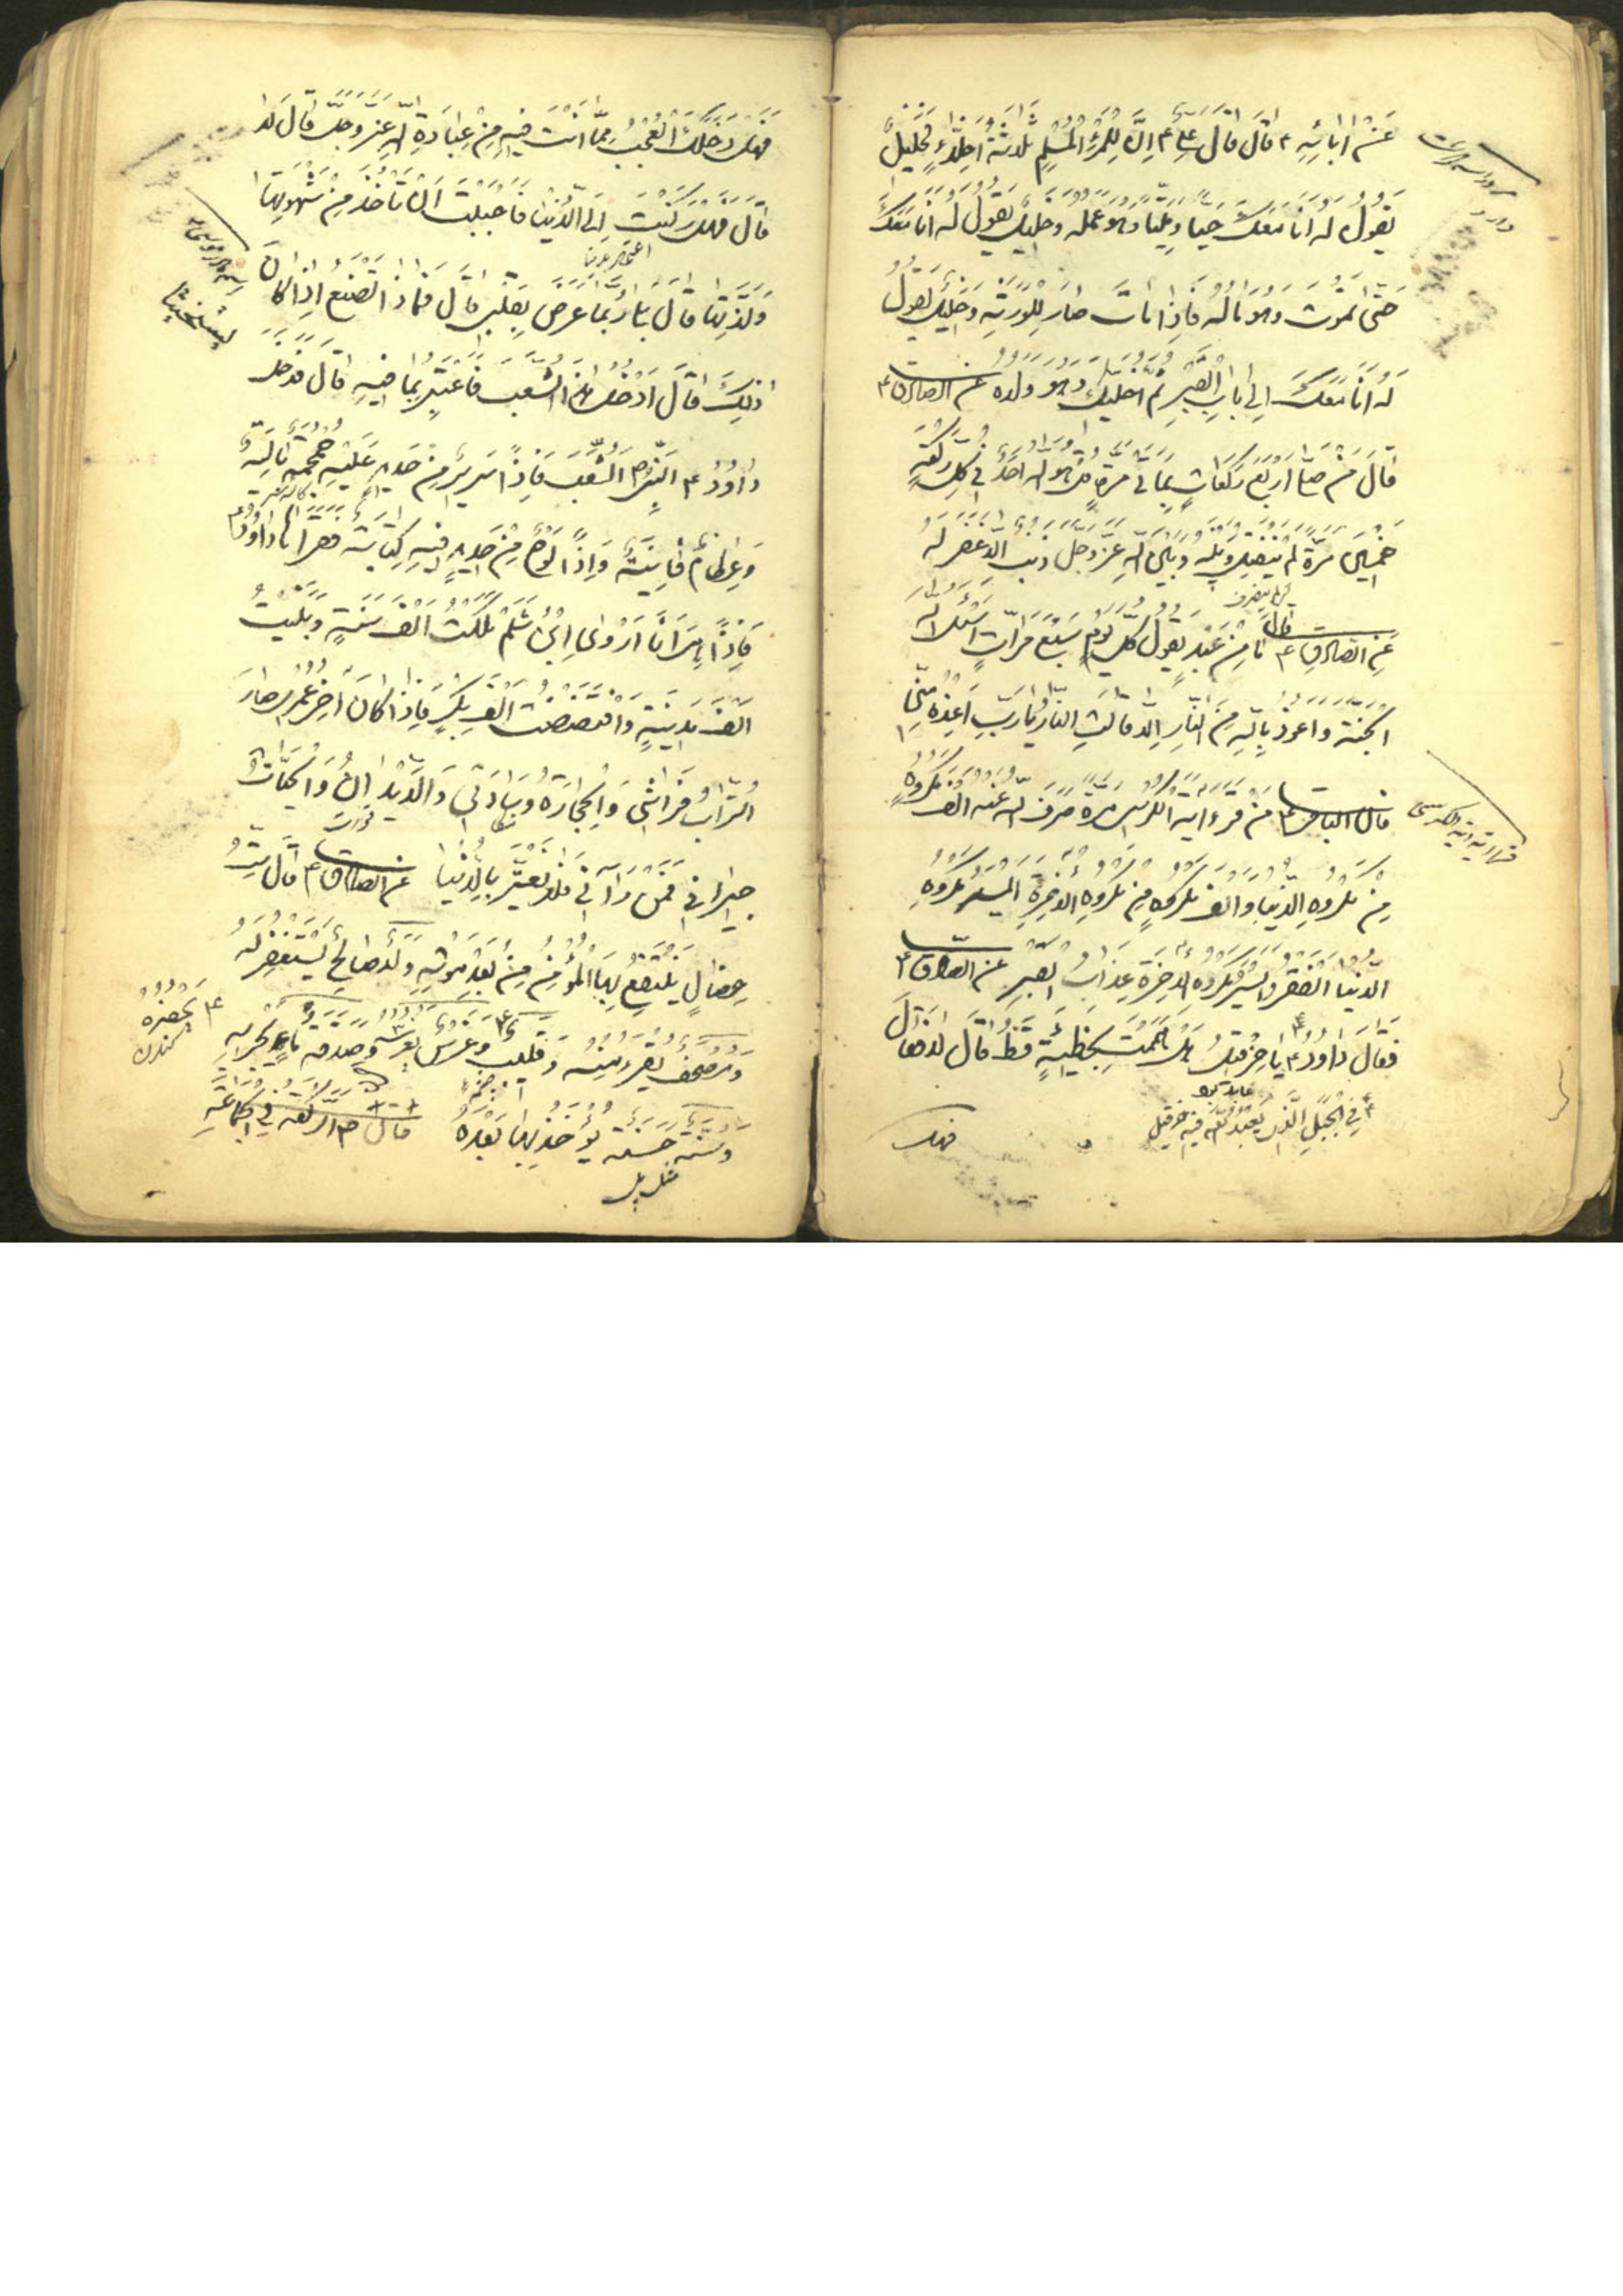 عَنْ ابَائِهِ ع قَالَ قَالَ عَلِيٌّ ع اِنَّ لِلْمَرْءِ الْمُسْلِمِ ثَلَاثَةُ اَخِلَّاءٍ فَخَلِيلٌ
يَقُولُ لَهُ اَنَا مَعَكَ حَيًّا وَمَيِّتًا وَهُوَ عَمَلُهُ وَخَلِيلٌ يَقُولُ لَهُ اَنَا مَعَكَ
حَتّى تَمُوتَ وَهُوَ مَالُهُ فَاِذَا مَاتَ صَارَ لِلْوَرَثَةِ وَخَلِيلٌ يَقُولُ
لَهُ اَنَا مَعَكَ اِلى بَابِ الْقَبْرِ ثُمَّ اُخَلِّيكَ وَهُوَ وَلَدُهُ عن الصادق ع
قَالَ مَنْ صَلّى اَرْبَعَ رَكَعَاتٍ بِمِاَتَيْ مَرَّةٍ قُلْ هُوَ اللهُ اَحَدٌ فِي كُلِّ رَكْعَةٍ
خَمْسِينَ مَرَّةً لَمْ يَنْفَتِلْ وَبَيْنَهُ وَبَيْنَ اللهِ عَزَّوَجَلَّ ذَنْبٌ اِلَّا غُفِرَ لَهُ
عَنِ الصَّادِقِ ع قال مَا مِنْ عَبْدٍ يَقُولُ كُلَّ يَوْمٍ سَبْعَ مَرَّاتٍ اَسْئَلُ اللهَ
الْجَنَّةَ وَاَعُوذُ بِاللهِ مِنَ النَّارِ اِلَّا قَالَتِ النَّارُ يَارَبِّ اَعِذْهُ مِنِّي
قال الباقر ع مَنْ قَرَءَ ايَةَ الْكُرْسِيِّ مَرَّةً صَرَفَ اللهُ عَنْهُ اَلْفَ مَكْرُوهٍ
قرائة اية الكرسى
مِنْ مَكْرُوهِ الدُّنْيَا وَاَلْفَ مَكْرُوهٍ مِنْ مَكْرُوهِ الْاخِرَةِ اَيْسَرُ مَكْرُوهِ
الدُّنْيَا الْفَقْرُ وَاَيْسَرُ مَكْرُوهِ الْاخِرَةِ عَذَابُ الْقَبْرِ عن الصادق ع
فَقَالَ دَاوُدُ ع يَا حِزْقِيلُ هَلْ هَمَمْتَ بِخَطِيئَةٍ قَطُّ قَالَ لَا قَالَ
فِي الْجَبَلِ الَّذِي يَعْبُدُ اللهَ فِيهِ حزقيل
فهل
فَهَلْ دَخَلَكَ الْعُجْبُ مِمَّا اَنْتَ فِيهِ مِنْ عِبَادَةِ اللهِ عَزَّ وَجَلَّ قَالَ لَا
قَالَ فَهَلْ رَكَنْتَ اِلَى الدُّنْيَا فَاَحْبَبْتَ اَنْ تَأْخُذَ مِنْ شَهْوَتِهَا
وَلَذَّتِهَا قَالَ بَلى رُبَّمَا عَرَضَ بِقَلْبِي قَالَ فَمَاذَا تَصْنَعُ اِذَا كَانَ
ذلِكَ قَالَ اَدْخُلُ هذَا الشِّعْبَ فَاَعْتَبِرُ بِمَا فِيهِ قَالَ فَدَخَلَ
دَاوُدُ ع النَّبِيُّ الشِّعْبَ فَاِذًا سَرِيرٌ مِنْ حَدِيدٍ عَلَيْهِ جُمْجُمَةٌ بَالِيَةٌ
وَعِظَامٌ فَانِيَةٌ وَاِذًا لَوْحٌ مِنْ حَدِيدٍ فِيهِ كِتَابَةٌ فَقَرَاَهَا دَاوُدُ ع
فَاِذًا هِيَ اَنَا اَرْوَى ابْنُ شَلَمٍ مَلَكْتُ اَلْفَ سَنَةٍ وَبَنَيْتُ
اَلْفَ مَدِينَةٍ وَافْتَضَضْتُ اَلْفَ بِكْرٍ فَاِذَا كَانَ اخِرُ عُمْرِي صَارَ
التُّرَابُ فِرَاشِي وَالْحِجَارَةُ وِسَادَتِي وَالدِّيدَانُ وَالْحَيَّاتُ
جِيرَانِي فَمَنْ رَآنِي فَلَا يَغْتَرَّ بِالدُّنْيَا عن الصادق ع قَالَ سِتُّ
خِصَالٍ يَنْتَفِعُ بِهَا الْمُؤْمِنُ مِنْ بَعْدِ مَوْتِهِ وَلَدٌ صَالِحٌ يَسْتَغْفِرُ لَهُ
وَمُصْحَفٌ يَقْرَءُ مِنْهُ وَقَلِيبٌ يَحْفِرُهُ وَغَرْسٌ يَغْرِسُهُ وَصَدَقَةُ مَاءٍ يُجْرِيهِ
وَسُنَّةٌ حَسَنَةٌ يُؤْخَذُ بِهَا بَعْدَهُ قال ص الركعة في الجماعة